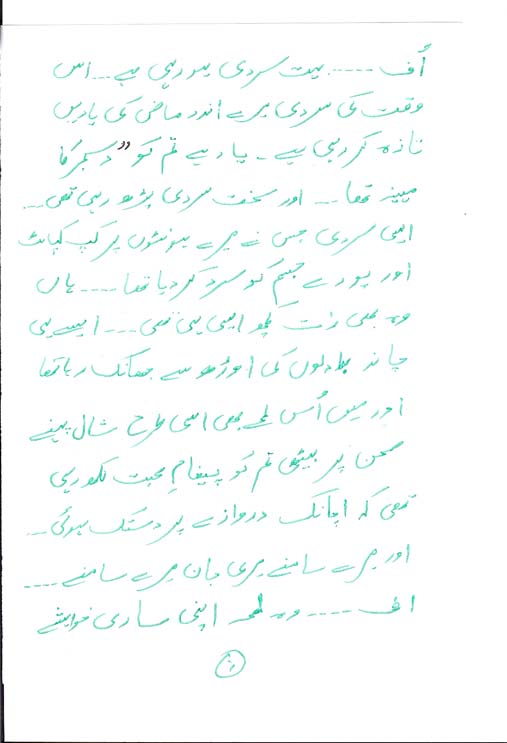 اُف ---- بہت سردی ہو رہی ہے -- اس
وقت کی سردی میرے اندر ماضی کی یادیں
تازہ کر رہی ہے - یاد ہے تم کو " دسمبر کا
مہینہ تھا -- اور سخت سردی بڑھ رہی تھی --
ایسی سردی جس نے میرے ہونٹوں پر کپ کپاہٹ
اور پورے جسم کو سرد کر دیا تھا ---- ہاں
وہ بھی رات کچھ ایسی ہی تھی --- ایسے ہی
چاند بادلوں کی اوڑھ سے جھانک رہا تھا
اور میں اُس لمحے بھی اسی طرح شال پہنے
صحن پر بیٹھی تم کو پیغامِ محبت لکھ رہی
تھی کہ اچانک دروازے پر دستک ہوئی --
اور میرے سامنے میری جان میرے سامنے ----
اف ---- وہ لمحہ اپنی ساری خواہشے